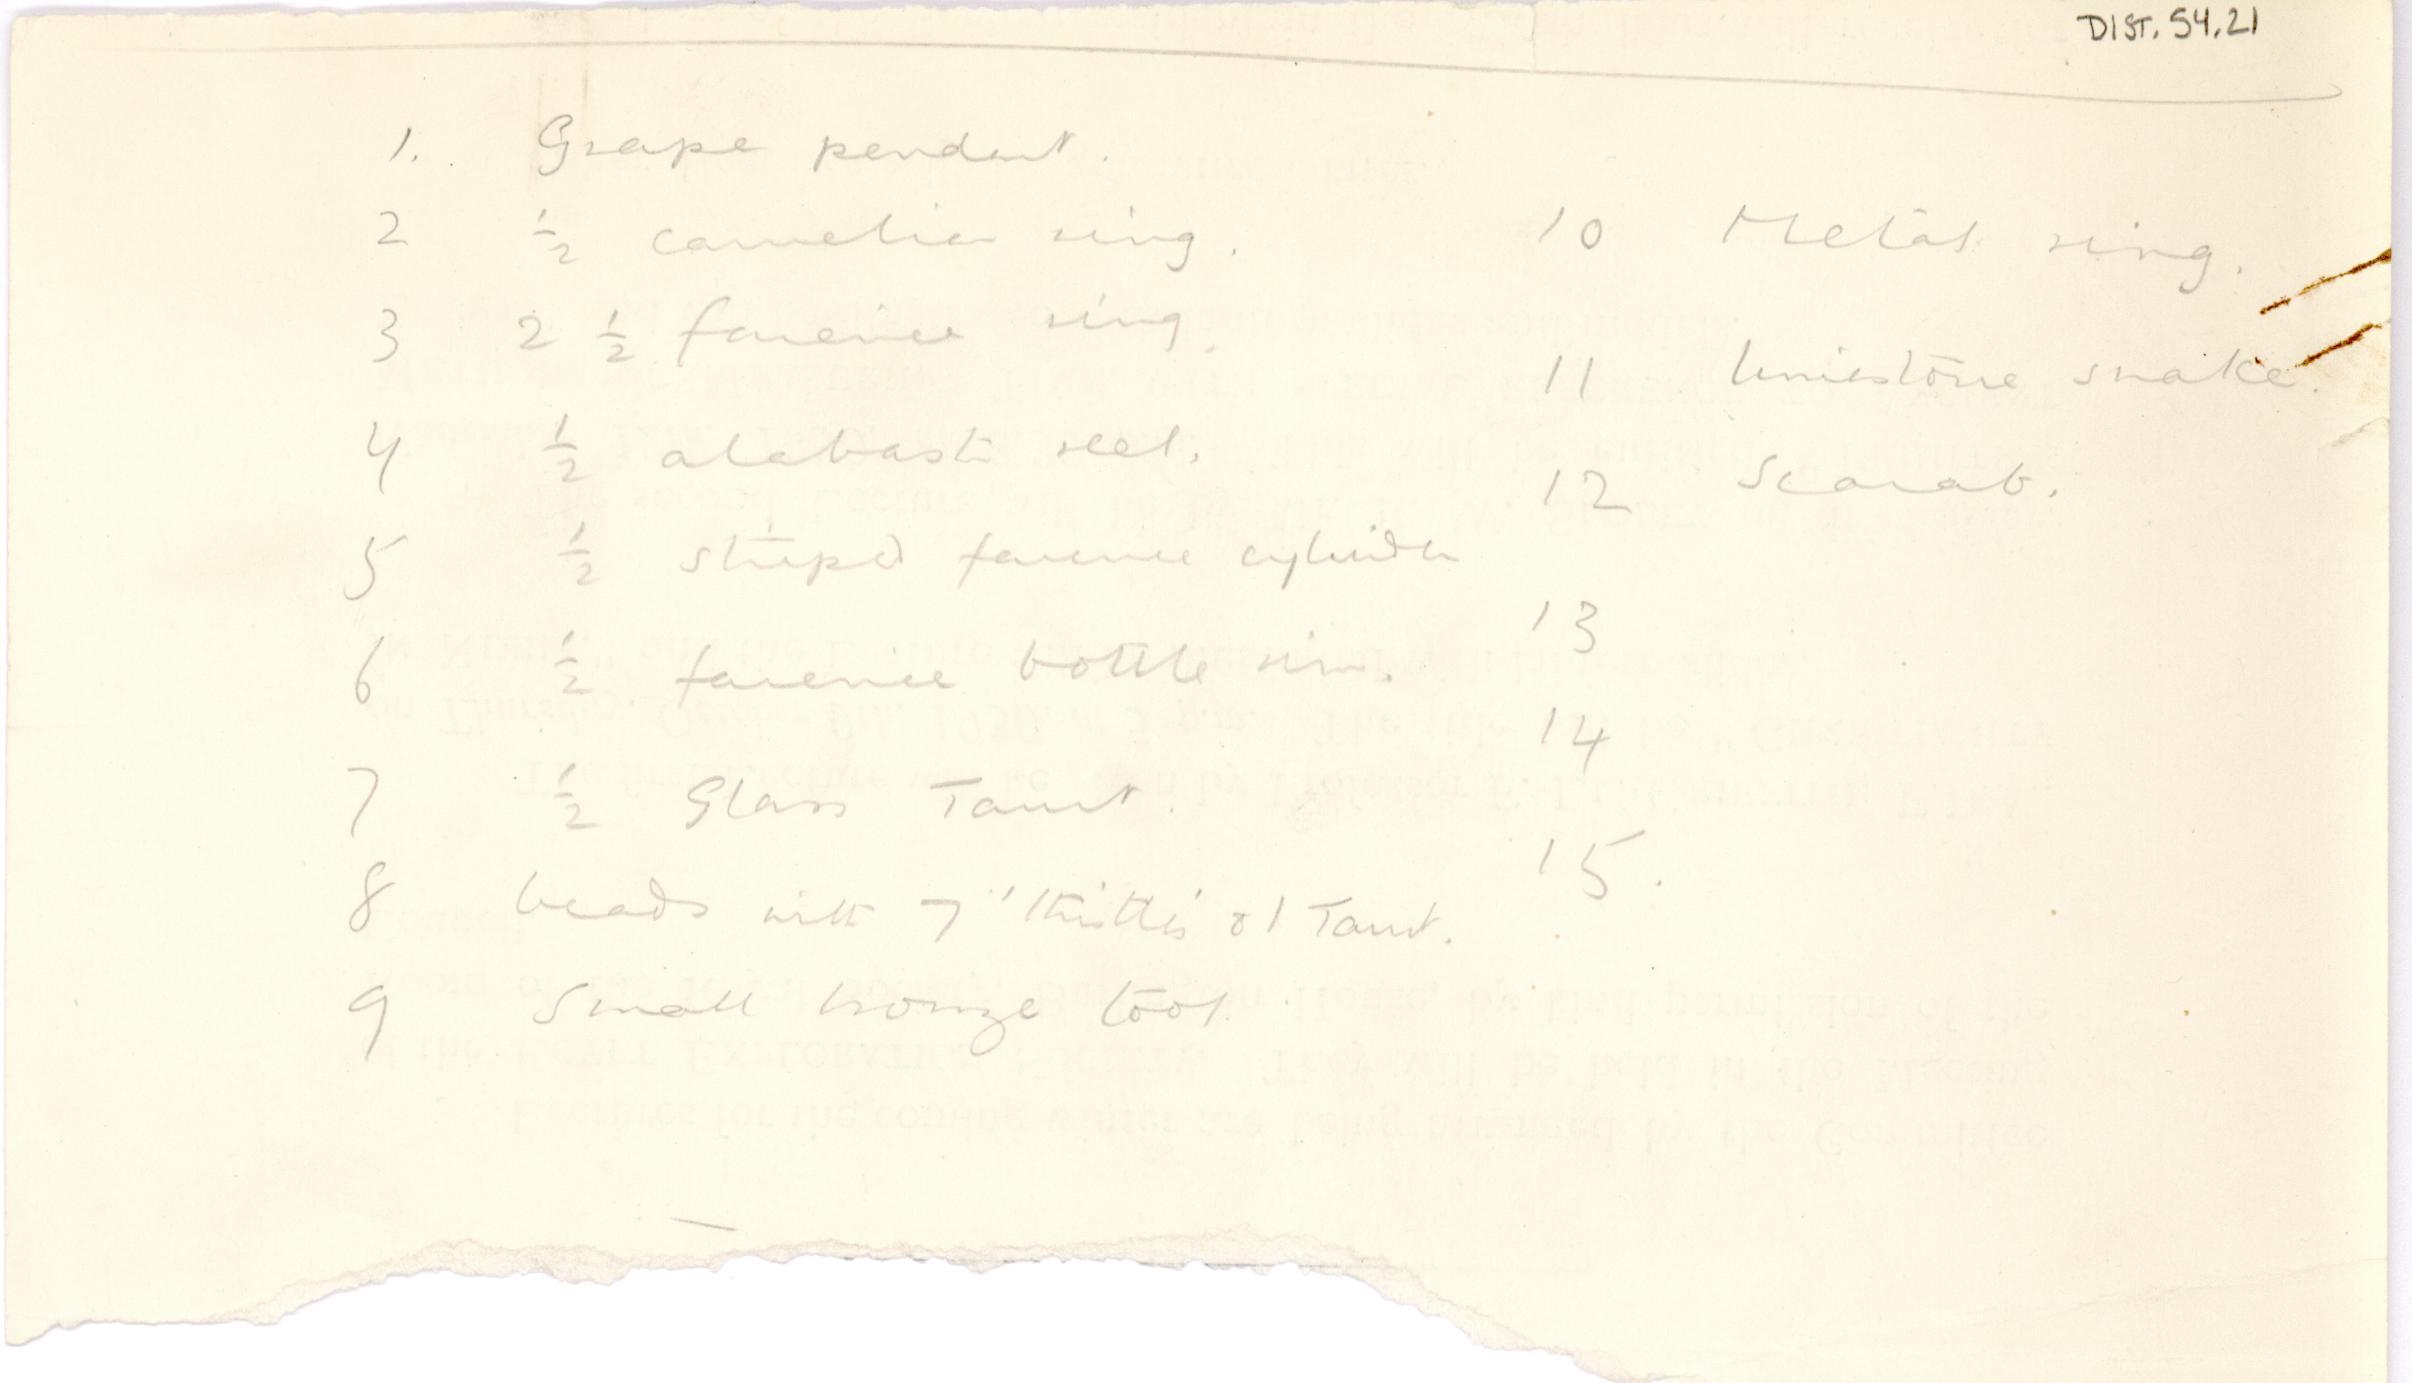 DIST. 54.21
1. Grape pendant.
2 ½ carnelian ring.
3 2 ½ faience ring.
4 ½ alabast reel.
5 ½ striped faience cylinder
6 ½ faience bottle rim.
7 ½ Glass Taurt.
8 beads with 7 'thistles' & 1 Taurt.
9 Small bronze tool.
10 Metal ring.
11 limestone snake.
12 Scarab.
13
14
15.